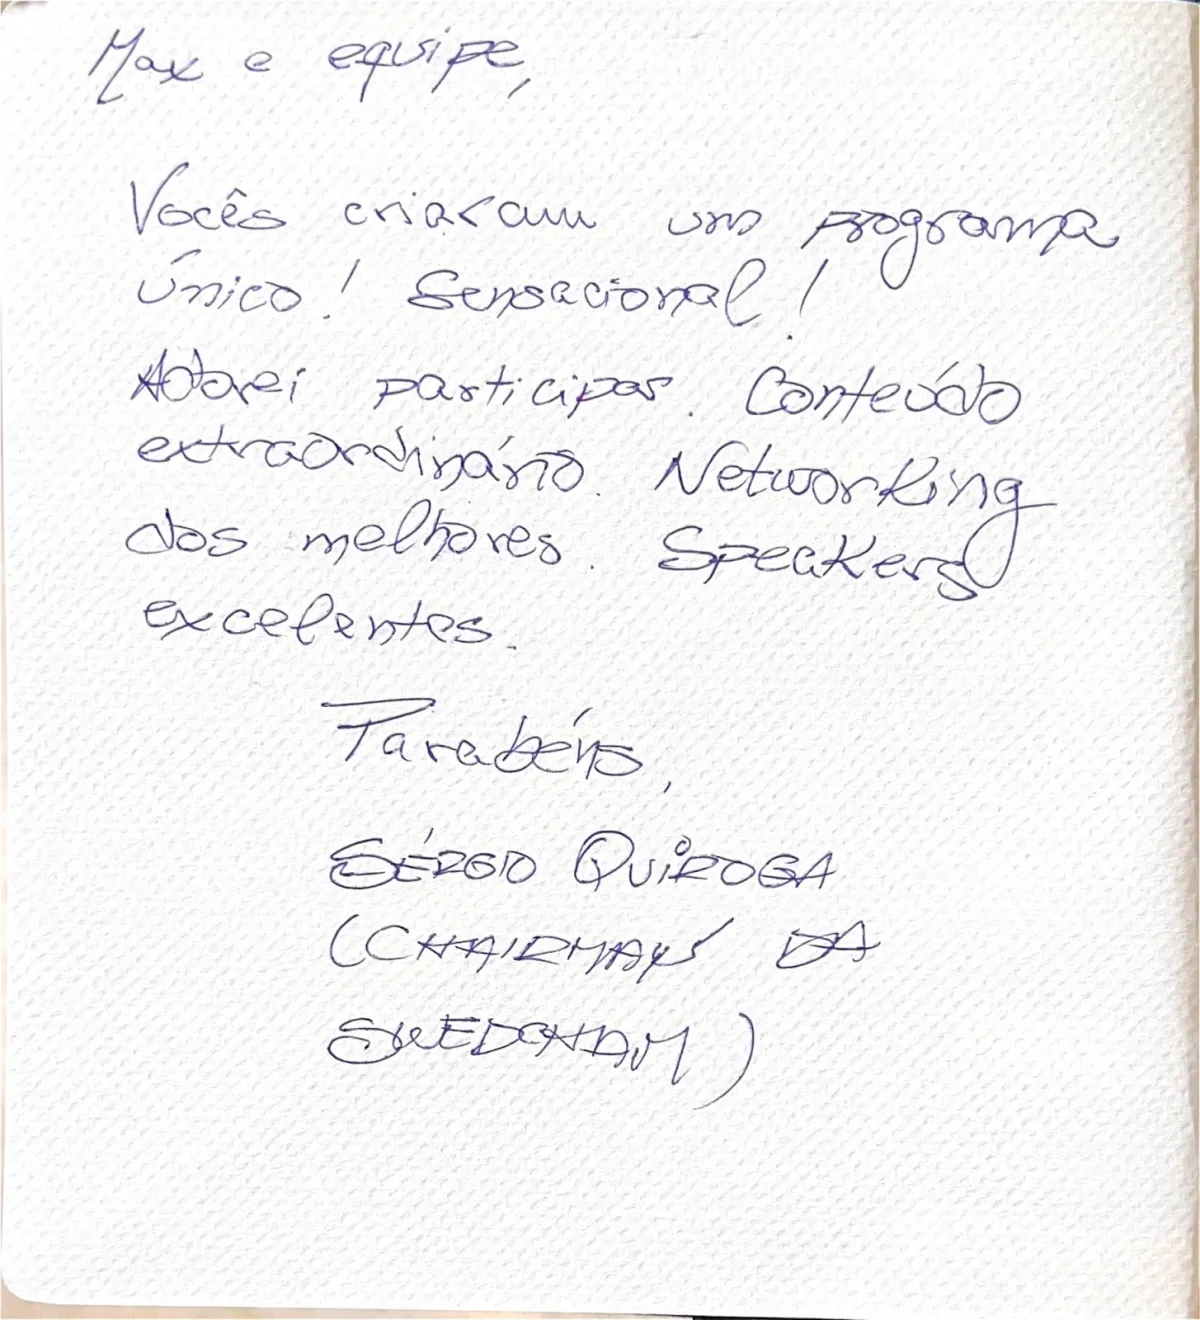 Max e equipe,
Vocês criaram um programa
único! Sensacional!
Adorei participar. Conteúdo
extraordinário. Networking
dos melhores. Speakers
excelentes.
Parabéns,
SÉRGIO QUIROGA
(CHAIRMAN DA
SWEDCHAM)